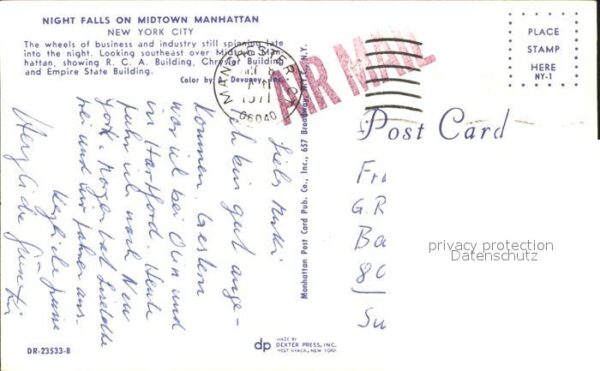 NIGHT FALLS ON MIDTOWN MANHATTAN
NEW YORK CITY
The wheels of business and industry still spinning late
into the night. Looking southeast over Midtown Man-
hattan, showing R. C. A. Building, Chrysler Building
and Empire State Building.
Color by Devaney, Inc.
MANCHESTER, CT
1971
06040
AIR MAIL
PLACE
STAMP
HERE
NY-1
Post Card
Manhattan Post Card Pub. Co., Inc., 657 Broadway, N.Y., N.Y.
Liebe
Ich bin gut ange-
kommen. Gestern
war ich bei Onn und
in Hartford. Heute
fahr ich nach New
York. Morgen hat Liselotte
frei und wir fahren aus.
Herzliche Grüsse
Herzliche
Fr
G. R
Ba
80
Su
privacy protection
Datenschutz
DR-23533-B
dp
MADE BY
DEXTER PRESS, INC.
WEST NYACK, NEW YORK